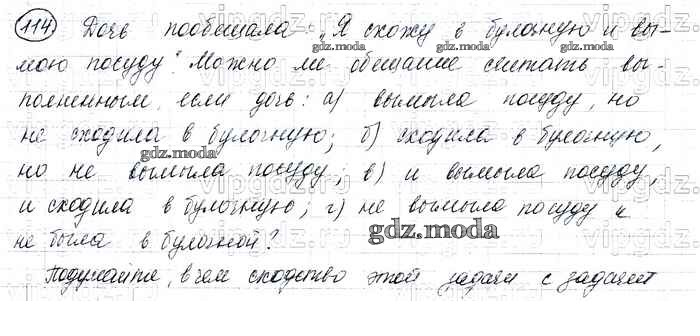 114. Дочь пообещала: „Я схожу в булочную и вы-
мою посуду“. Можно ли обещание считать вы-
полненным, если дочь: а) вымыла посуду, но
не сходила в булочную; б) сходила в булочную,
но не вымыла посуду; в) и вымыла посуду,
и сходила в булочную; г) не вымыла посуду и
не была в булочной?
Подумайте, в чем сходство этой задачи с задачей
gdz.moda
gdz.moda
gdz.moda
gdz.moda
gdz.moda